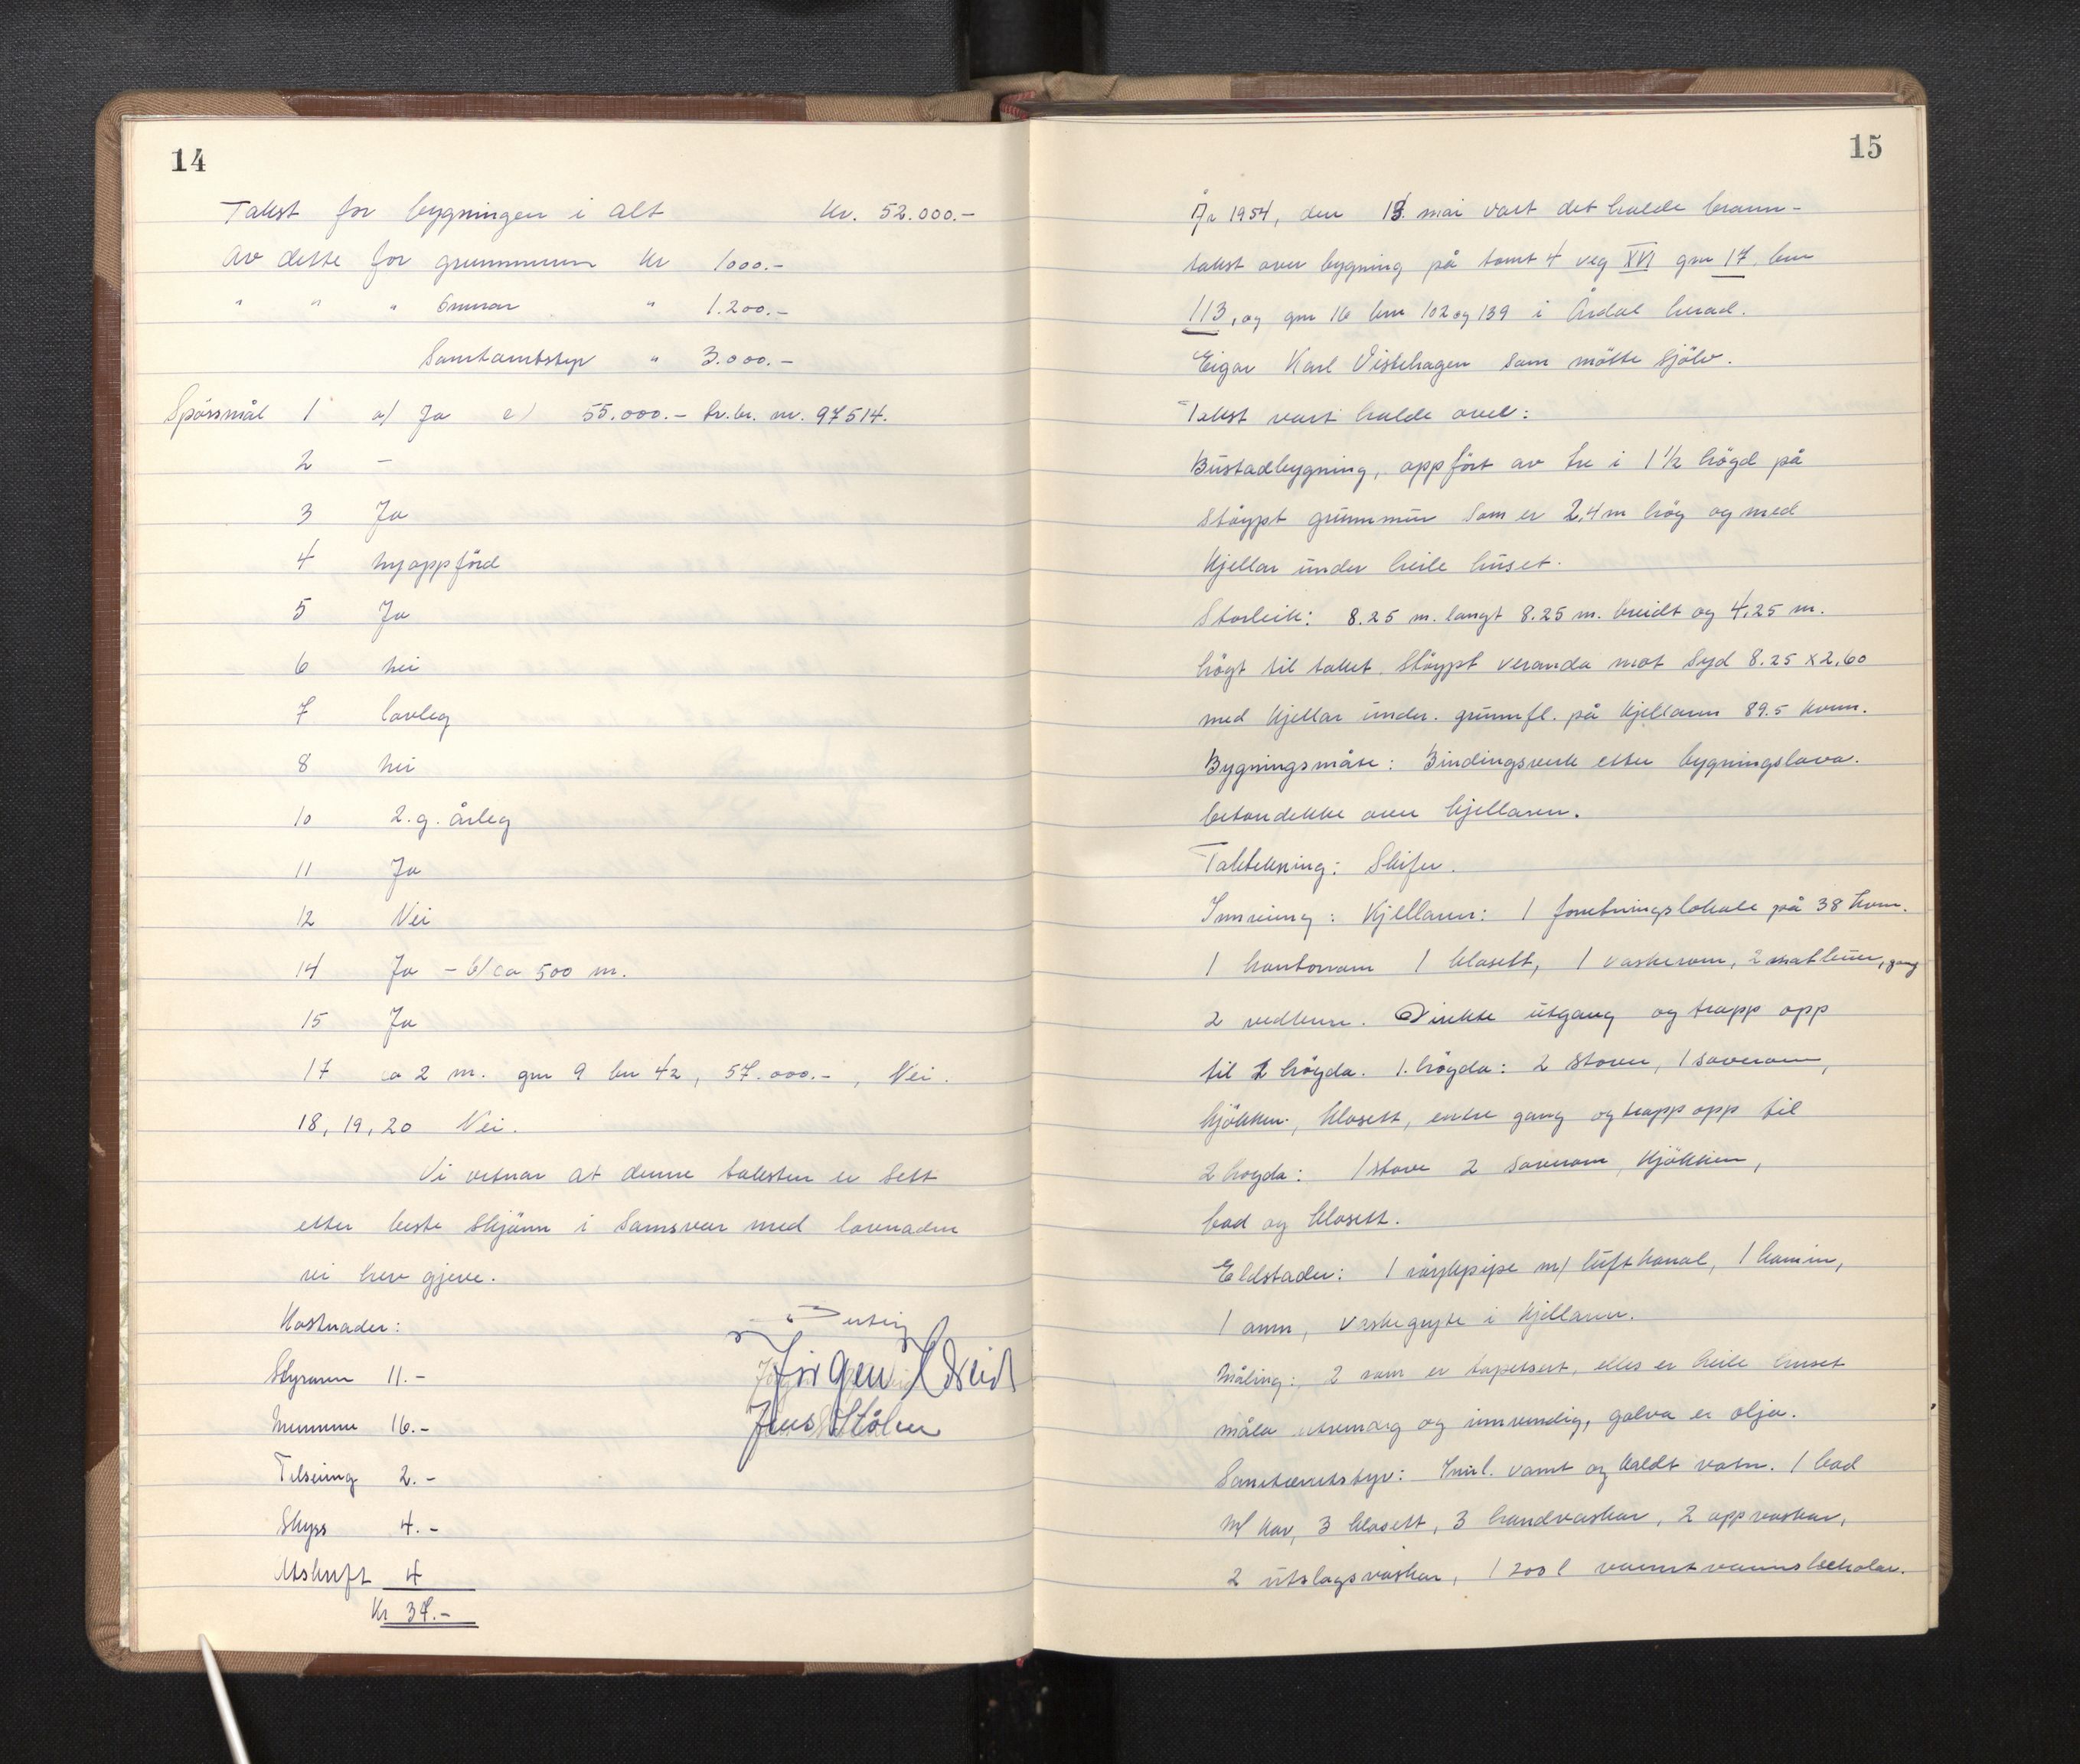 14
Takst for bygningen i alt kr. 52.000.-
Av dette for grunnmuren kr 1000.-
" " " Ommar " 1.200.-
Sanitærutstyr " 3.000.-
Spörsmål 1 a) Ja e) 55.000.- br.br. nr. 97514.
2 -
3 Ja
4 nyoppförd
5 Ja
6 nei
7 lovleg
8 nei
10 2.g. årleg
11 Ja
12 Nei
14 Ja - b/ ca 500 m.
15 Ja
17 ca 2 m. gnr 9 bnr 42, 57.000.-, Nei.
18, 19, 20 Nei.
Vi vitnar at denne taksten er sett
etter beste skjönn i samsvar med lovnaden
vi hev gjeve.
Kostnader:
Styraren 11.-
Nemnne 16.-
Jørgen Hereid
Jens Stölen
Tilseing 2.-
Skyss 4.-
Utskrift 4
Kr 37.-
15
År 1954, den 13. mai vart det halde brann-
takst over bygning på tomt 4 veg XVI gnr 17 bnr
113, og gnr 16 bnr 102 og 139 i Årdal herad.
Eigar Karl Vistehagen som mötte sjölv.
Takst vart halde over:
Bustadbygning, oppfört av tre i 1 1/2 högd på
stöypt grunnmur som er 2,4 m hög og med
kjellar under heile huset.
Storleik: 8.25 m. langt 8.25 m. breidt og 4,25 m.
högt til taket. Stöypt veranda mot syd 8.25 x 2,60
med kjellar under. grunnfl. på kjellaren 89.5 kvm.
Bygningsmåte: Bindingsverk etter bygningslova.
betondekke over kjellaren.
Taktekning: Skifer.
Innreiing: Kjellaren: 1 foretningslokale på 38 kvm.
1 kontorrom 1 klosett, 1 vaskerom, 2 matbuer, gang
2 vedbuer. Direkte utgang og trapp opp
til 1 högda. 1. högda: 2 stover, 1 soverom,
kjökken, klosett, entre gang og trapp opp til
2 högda: 1 stove 2 soverom, kjökken,
bad og klosett.
Eldstader: 1 röykpipe m/ luftkanal, 1 kamin,
1 omn, vaskegryte i kjellaren.
Måling: 2 rom er tapetsert, elles er heile huset
måla utvendig og innvendig, golva er olja.
Sanitærutstyr: Innl. varmt og kaldt vatn. 1 bad
m/ kar, 3 klosett, 3 handvaskar, 2 oppvaskar,
2 utslagsvaskar, 1 200 l varmtvannsbeholar.